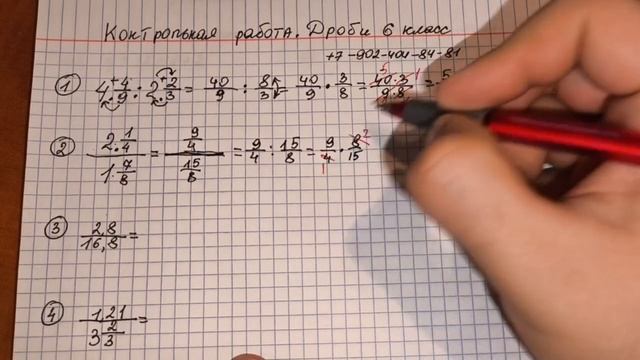 Контрольная работа. Дроби 6 класс
+7-902-401-84-81
① 4 4/9 : 2 2/3 = 40/9 : 8/3 = 40/9 · 3/8 = 40·3/9·8 = 5
② 2 1/4 / 1 7/8 = 9/4 / 15/8 = 9/4 : 15/8 = 9/4 · 8/15
③ 2,8/16,8 =
④ 1,21 / 3 2/3 =